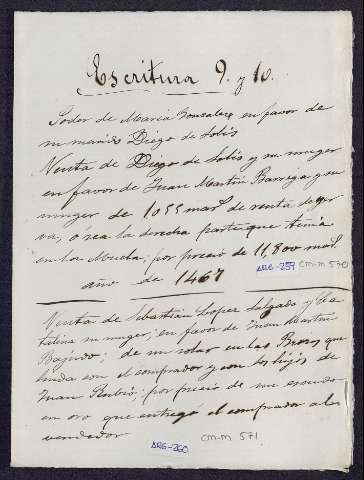 Escritura 9. y 10.
Poder de Maria Gonzalez en favor de
su marido Diego de Solis
Venta de Diego de Solis y su muger
en favor de Juan Martin Barrega y su
muger de 1055 marl de renta de yer
va, ó sea la derecha parte que tenia
en los Mucla; por precio de 11,800 marl
año de 1467
ARG-259 CM-M 570
Venta de Sebastián Lopez Salgado y Ca
talina su muger, en favor de Juan Martin
Bajudo; de un solar en las Brozas que
linda con el comprador y con los hijos de
Juan Rubio; por precio de un escudo
en oro que entregó el comprador a los
vendedor
ARG-260 CM-M 571